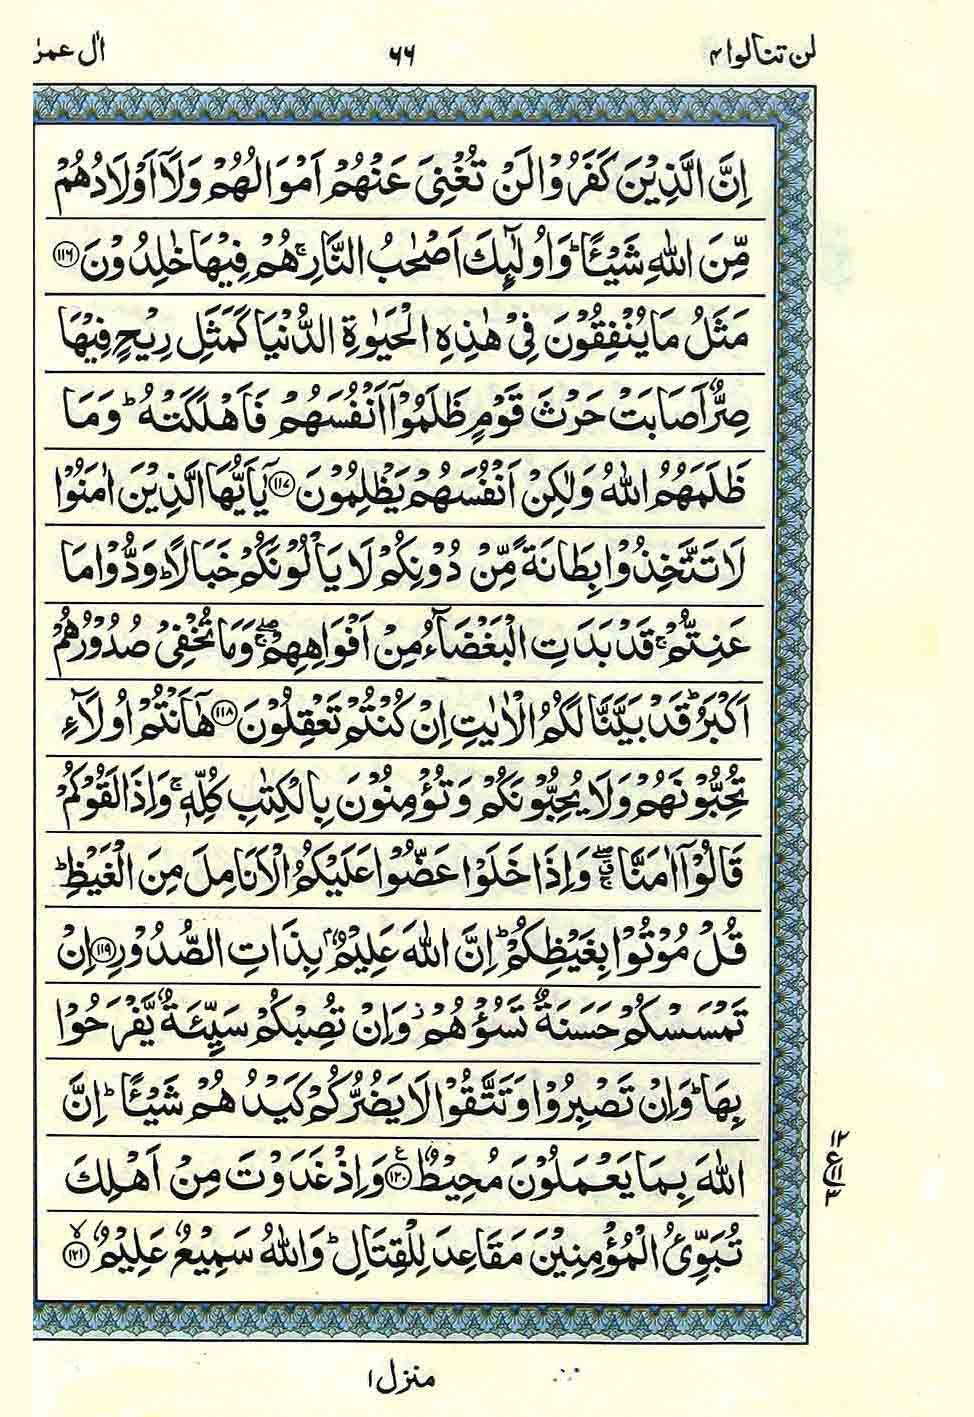 لن تنالوا ۴ ۶۶ اٰل عمرٰن
اِنَّ الَّذِیْنَ کَفَرُوْا لَنْ تُغْنِیَ عَنْهُمْ اَمْوَالُهُمْ وَلَاۤ اَوْلَادُهُمْ
مِّنَ اللّٰهِ شَیْـًٔا ؕ وَاُولٰٓئِكَ اَصْحٰبُ النَّارِ ۚ هُمْ فِیْهَا خٰلِدُوْنَ ﴿۱۱۶﴾
مَثَلُ مَا یُنْفِقُوْنَ فِیْ هٰذِهِ الْحَیٰوةِ الدُّنْیَا کَمَثَلِ رِیْحٍ فِیْهَا
صِرٌّ اَصَابَتْ حَرْثَ قَوْمٍ ظَلَمُوْۤا اَنْفُسَهُمْ فَاَهْلَکَتْهُ ؕ وَمَا
ظَلَمَهُمُ اللّٰهُ وَلٰکِنْ اَنْفُسَهُمْ یَظْلِمُوْنَ ﴿۱۱۷﴾ یٰۤاَیُّهَا الَّذِیْنَ اٰمَنُوْا
لَا تَتَّخِذُوْا بِطَانَةً مِّنْ دُوْنِکُمْ لَا یَاْلُوْنَکُمْ خَبَالًا ؕ وَدُّوْا مَا
عَنِتُّمْ ۚ قَدْ بَدَتِ الْبَغْضَآءُ مِنْ اَفْوَاهِهِمْ ۖۚ وَمَا تُخْفِیْ صُدُوْرُهُمْ
اَکْبَرُ ؕ قَدْ بَیَّنَّا لَکُمُ الْاٰیٰتِ اِنْ کُنْتُمْ تَعْقِلُوْنَ ﴿۱۱۸﴾ هٰۤاَنْتُمْ اُولَآءِ
تُحِبُّوْنَهُمْ وَلَا یُحِبُّوْنَکُمْ وَتُؤْمِنُوْنَ بِالْکِتٰبِ کُلِّهٖ ۚ وَاِذَا لَقُوْکُمْ
قَالُوْۤا اٰمَنَّا ۖۗۚ وَاِذَا خَلَوْا عَضُّوْا عَلَیْکُمُ الْاَنَامِلَ مِنَ الْغَیْظِ ؕ
قُلْ مُوْتُوْا بِغَیْظِکُمْ ؕ اِنَّ اللّٰهَ عَلِیْمٌۢ بِذَاتِ الصُّدُوْرِ ﴿۱۱۹﴾ اِنْ
تَمْسَسْکُمْ حَسَنَةٌ تَسُؤْهُمْ ؗ وَاِنْ تُصِبْکُمْ سَیِّئَةٌ یَّفْرَحُوْا
بِهَا ؕ وَاِنْ تَصْبِرُوْا وَتَتَّقُوْا لَا یَضُرُّکُمْ کَیْدُهُمْ شَیْـًٔا ؕ اِنَّ
اللّٰهَ بِمَا یَعْمَلُوْنَ مُحِیْطٌ ﴿۱۲۰﴾ع وَاِذْ غَدَوْتَ مِنْ اَهْلِكَ
۱۲
ع ۱۱
۳
تُبَوِّئُ الْمُؤْمِنِیْنَ مَقَاعِدَ لِلْقِتَالِ ؕ وَاللّٰهُ سَمِیْعٌ عَلِیْمٌ ﴿۱۲۱﴾ۙ
منزل ۱